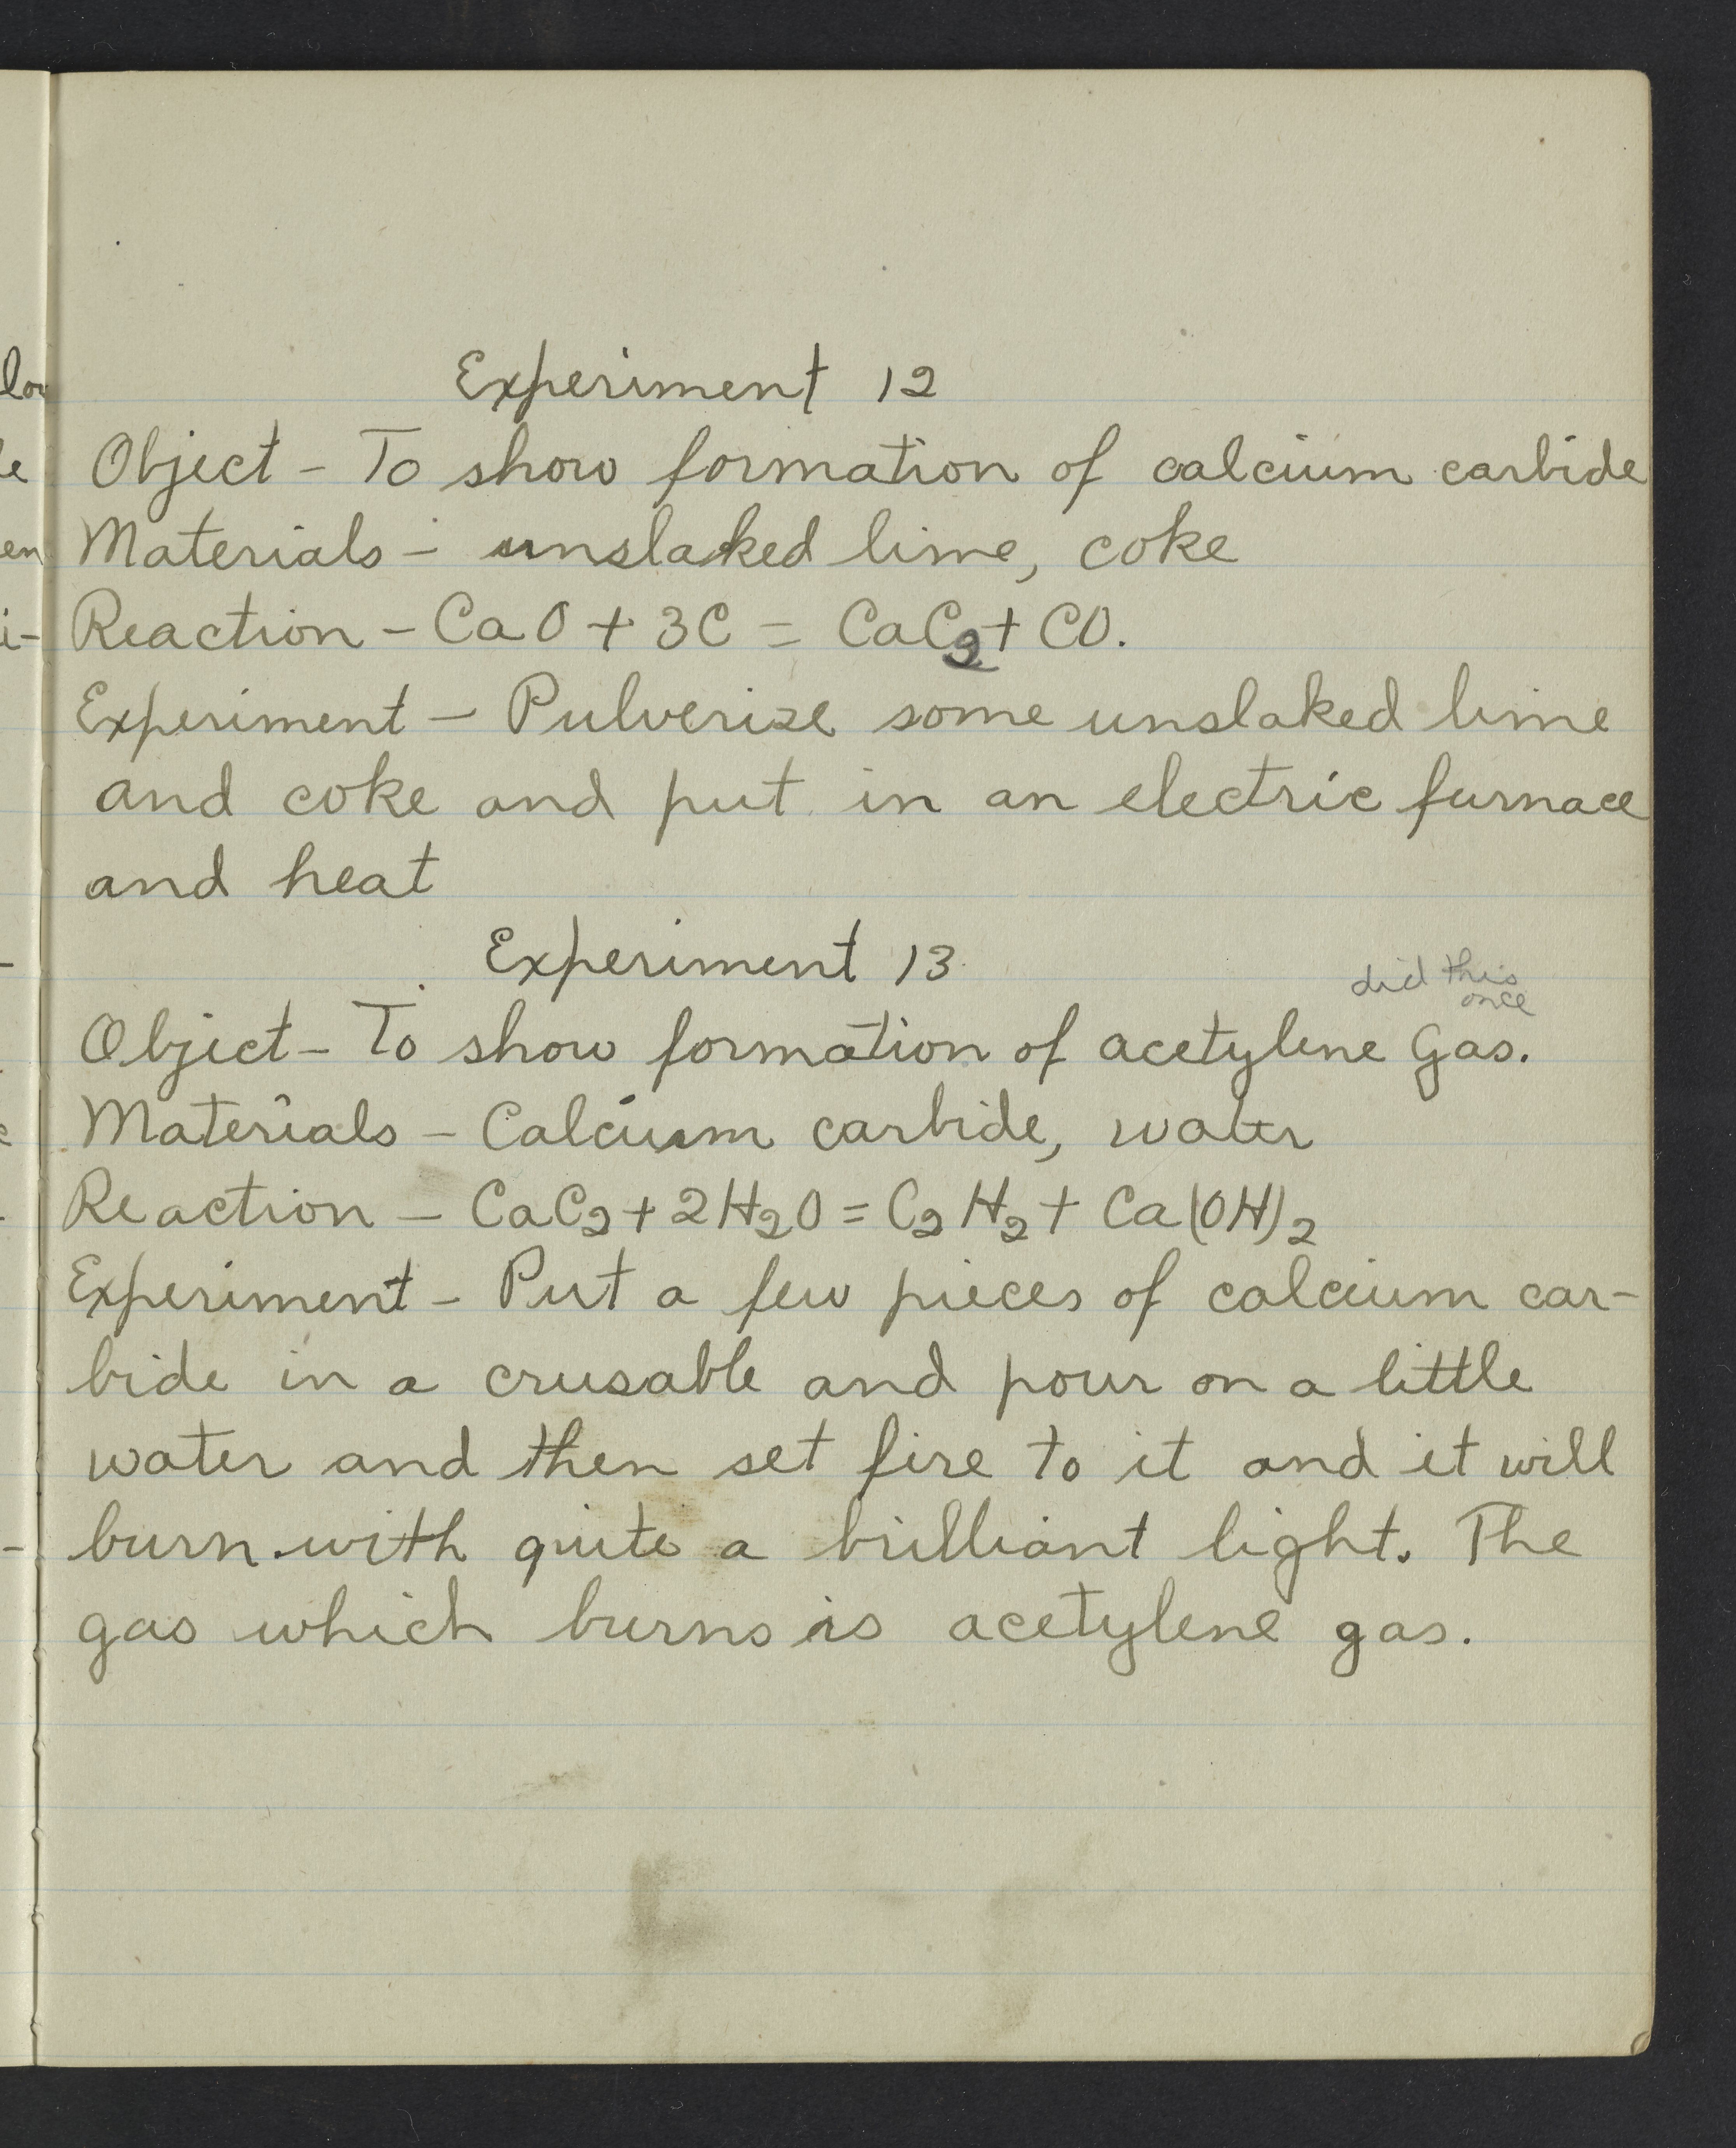 Experiment 12
Object - To show formation of calcium carbide
Materials - unslaked lime, coke
Reaction - CaO + 3C = CaC₂ + CO.
Experiment - Pulverize some unslaked lime
and coke and put in an electric furnace
and heat
Experiment 13
did this
once
Object - To show formation of acetylene Gas.
Materials - Calcium carbide, water
Reaction - CaC₂ + 2H₂O = C₂H₂ + Ca(OH)₂
Experiment - Put a few pieces of calcium car-
bide in a crusable and pour on a little
water and then set fire to it and it will
burn with quite a brilliant light. The
gas which burns is acetylene gas.